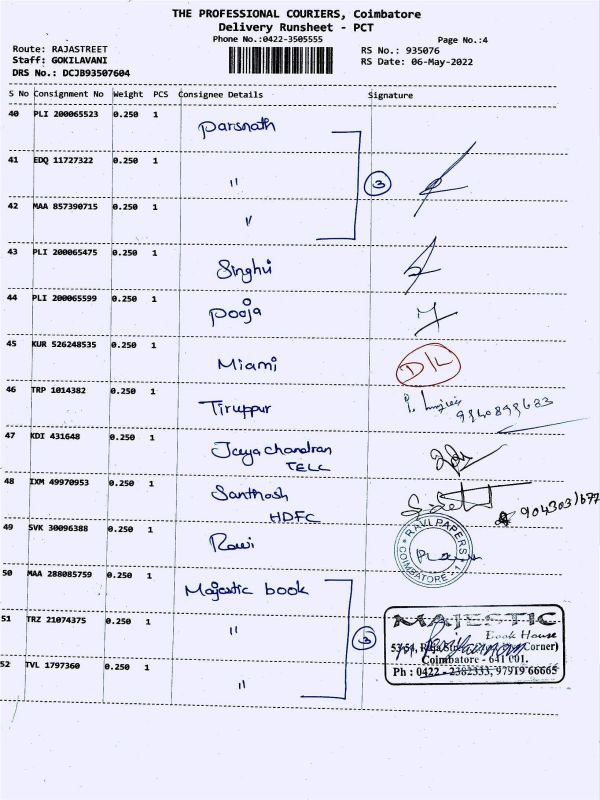 THE PROFESSIONAL COURIERS, Coimbatore
Delivery Runsheet - PCT
Phone No.:0422-3505555
Page No.:4
Route: RAJASTREET
Staff: GOKILAVANI
DRS No.: DCJB93507604
RS No.: 935076
RS Date: 06-May-2022
S No Consignment No Weight PCS Consignee Details Signature
40 PLI 200065523 0.250 1 Parsnath
41 EDQ 11727322 0.250 1 "
3
42 MAA 857390715 0.250 1 "
43 PLI 200065475 0.250 1 Singhvi
44 PLI 200065599 0.250 1 Pooja
45 KUR 526248535 0.250 1 Miami D/L
46 TRP 1014382 0.250 1 Tiruppur
47 KDI 431648 0.250 1 Jaya chandran
TELC
48 IXM 49970953 0.250 1 Santhosh
HDFC
49 SVK 30096388 0.250 1 Ravi
RAVI PAPERS
COIMBATORE - 1
50 MAA 288085759 0.250 1 Majestic book
51 TRZ 21074375 0.250 1 "
3
MAJESTIC
Book House
53/54, Raja Street Corner)
Coimbatore - 641 001.
Ph : 0422 - 2382333, 97919 66665
52 TVL 1797360 0.250 1 "